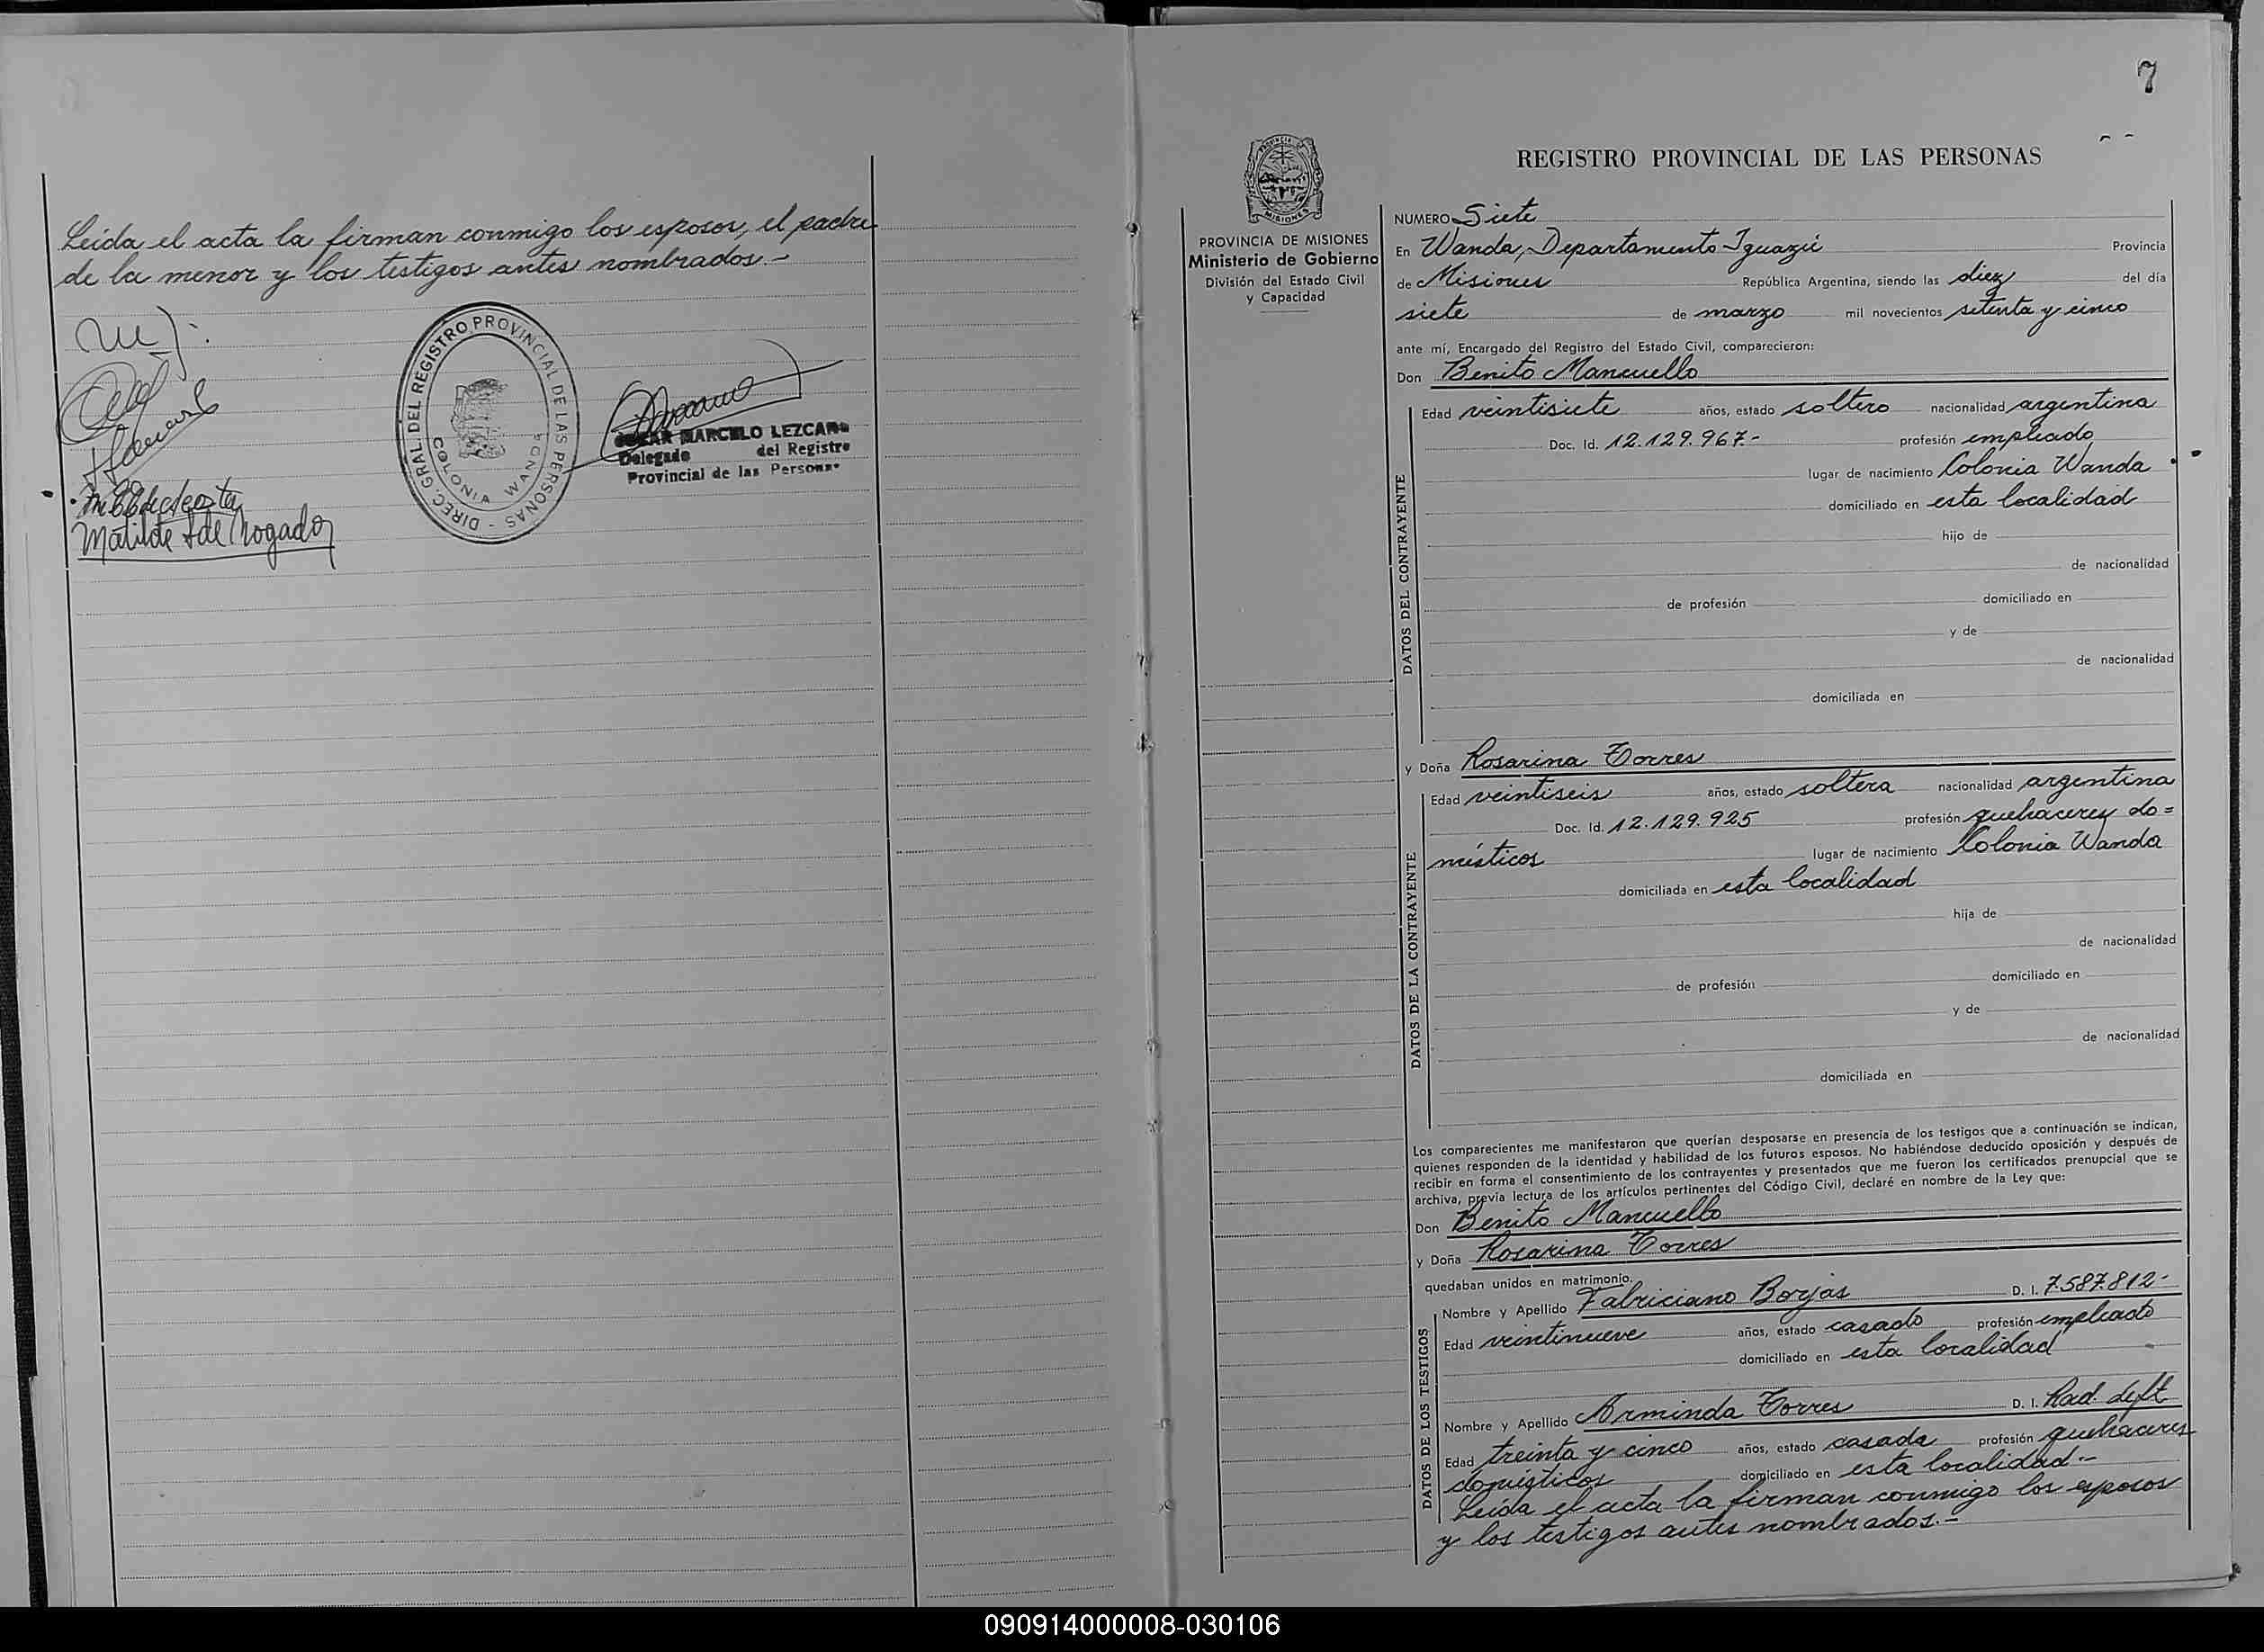 Leída el acta la firman conmigo los esposos, el padre
de la menor y los testigos antes nombrados.-
Matilde de Nogador
DIREC. GRAL. DEL REGISTRO PROVINCIAL DE LAS PERSONAS -
COLONIA WANDA
MARCELO LEZCANO
Delegado del Registro
Provincial de las Personas
7
REGISTRO PROVINCIAL DE LAS PERSONAS
PROVINCIA DE MISIONES
Ministerio de Gobierno
División del Estado Civil
y Capacidad
NUMERO Siete
En Wanda, Departamento Iguazú Provincia
de Misiones República Argentina, siendo las diez del día
siete de marzo mil novecientos setenta y cinco
ante mí, Encargado del Registro del Estado Civil, comparecieron:
Don Benito Mancuello
DATOS DEL CONTRAYENTE
Edad veintisiete años, estado soltero nacionalidad argentina
Doc. Id. 12.129.967- profesión empleado
lugar de nacimiento Colonia Wanda
domiciliado en esta localidad
hijo de
de nacionalidad
de profesión domiciliado en
y de
de nacionalidad
domiciliada en
y Doña Rosarina Torres
DATOS DE LA CONTRAYENTE
Edad veintiseis años, estado soltera nacionalidad argentina
Doc. Id. 12.129.925 profesión quehaceres do=
mésticos lugar de nacimiento Colonia Wanda
domiciliada en esta localidad
hija de
de nacionalidad
de profesión domiciliado en
y de
de nacionalidad
domiciliada en
Los comparecientes me manifestaron que querían desposarse en presencia de los testigos que a continuación se indican,
quienes responden de la identidad y habilidad de los futuros esposos. No habiéndose deducido oposición y después de
recibir en forma el consentimiento de los contrayentes y presentados que me fueron los certificados prenupcial que se
archiva, previa lectura de los artículos pertinentes del Código Civil, declaré en nombre de la Ley que:
Don Benito Mancuello
y Doña Rosarina Torres
quedaban unidos en matrimonio.
DATOS DE LOS TESTIGOS
Nombre y Apellido Fabriciano Borjas D. I. 7.587.812-
Edad veintinueve años, estado casado profesión empleado
domiciliado en esta localidad
Nombre y Apellido Arminda Torres D. I. Rad. deft.
Edad treinta y cinco años, estado casada profesión quehaceres
domésticos domiciliado en esta localidad.-
Leída el acta la firman conmigo los esposos
y los testigos antes nombrados.-
090914000008-030106